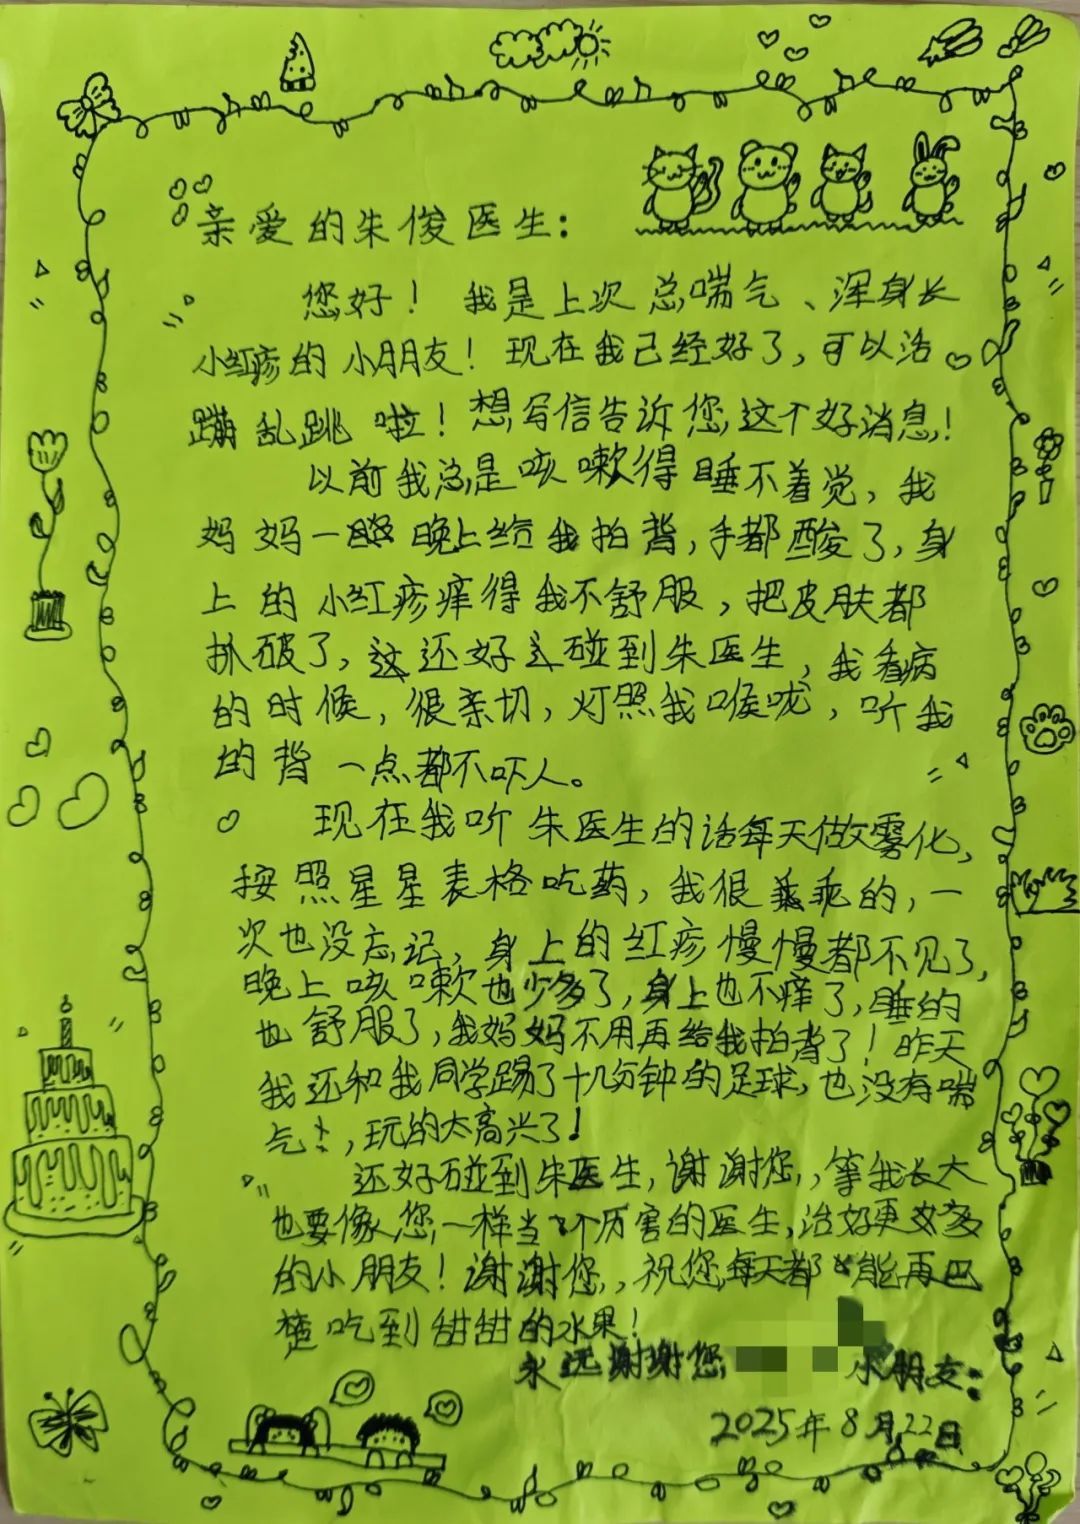 亲爱的朱俊医生：
您好！我是上次总喘气、浑身长
小红疹的小朋友！现在我已经好了，可以活
蹦乱跳啦！想写信告诉您这个好消息！
以前我总是咳嗽得睡不着觉，我
妈妈一晚晚上给我拍背，手都酸了，身
上的小红疹痒得我不舒服，把皮肤都
抓破了，这还好碰到朱医生，我看病
的时候，很亲切，灯照我喉咙，听我
的背一点都不吓人。
现在我听朱医生的话每天做雾化，
按照星星表格吃药，我很乖乖的，一
次也没忘记，身上的红疹慢慢都不见了，
晚上咳嗽也少多了，身上也不痒了，睡的
也舒服了，我妈妈不用再给我拍背了！昨天
我还和我同学踢了十几分钟的足球，也没有喘
气，玩的太高兴了！
还好碰到朱医生，谢谢您，等我长大
也要像您一样当个厉害的医生，治好更多
的小朋友！谢谢您，祝您每天都能再
吃到甜甜的水果！
永远谢谢您 小朋友：
2025年8月22日